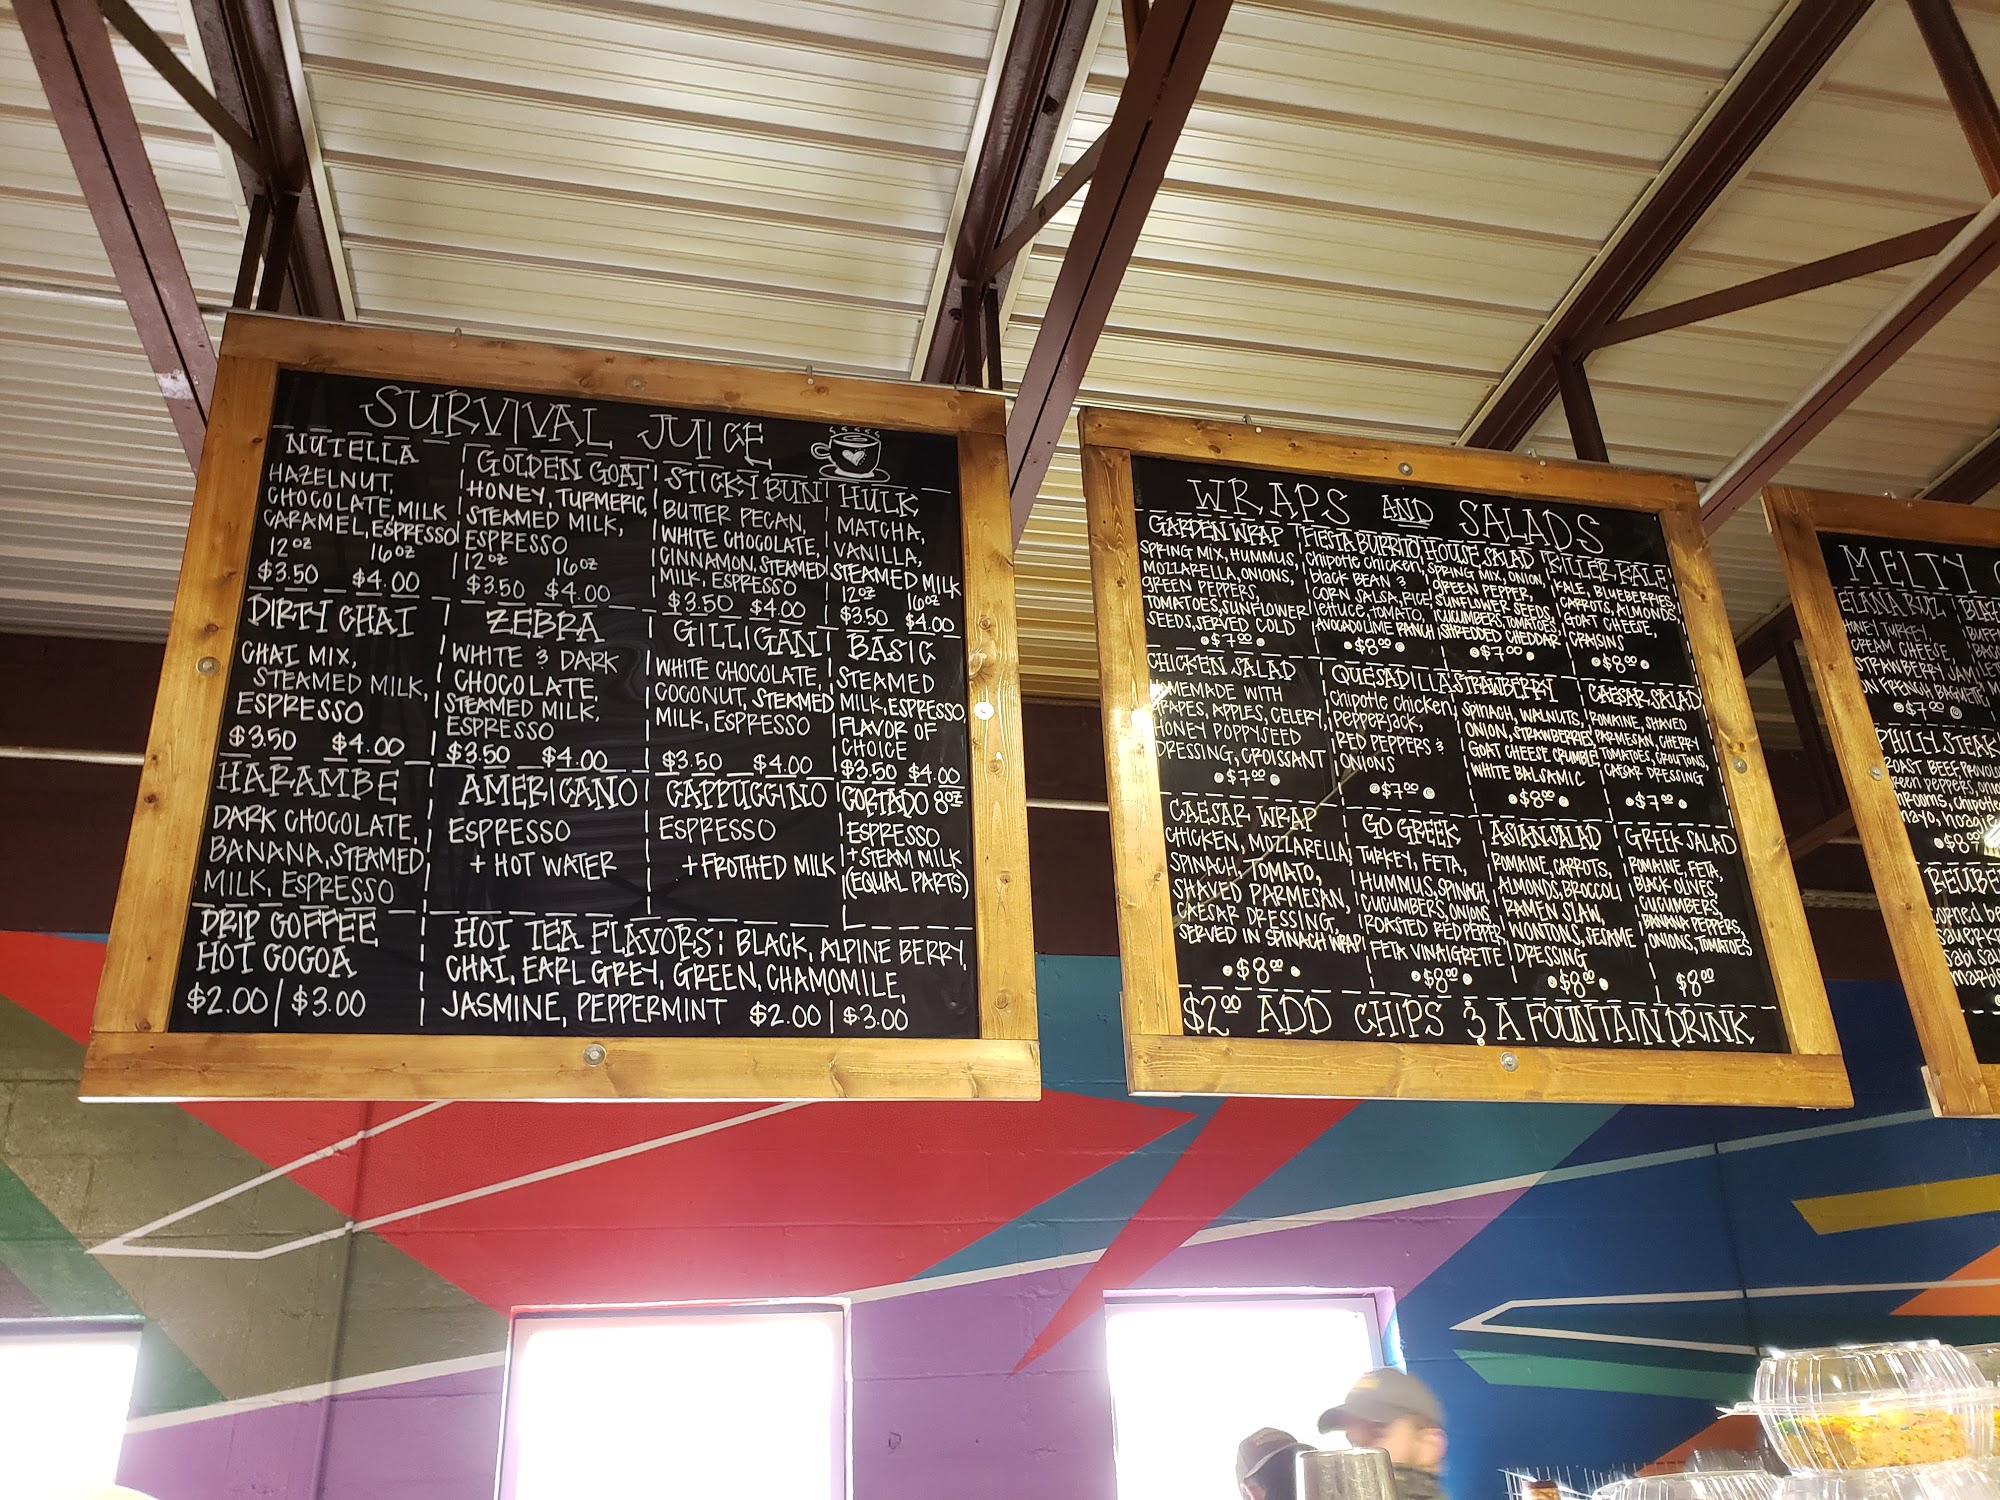 SURVIVAL JUICE
NUTELLA
HAZELNUT,
CHOCOLATE, MILK
CARAMEL, ESPRESSO
12oz 16oz
$3.50 $4.00
GOLDEN GOAT
HONEY, TURMERIC,
STEAMED MILK,
ESPRESSO
12oz 16oz
$3.50 $4.00
STICKY BUN
BUTTER PECAN,
WHITE CHOCOLATE,
CINNAMON, STEAMED
MILK, ESPRESSO
$3.50 $4.00
HULK
MATCHA,
VANILLA,
STEAMED MILK
12oz 16oz
$3.50 $4.00
DIRTY CHAI
CHAI MIX,
STEAMED MILK,
ESPRESSO
$3.50 $4.00
ZEBRA
WHITE & DARK
CHOCOLATE,
STEAMED MILK,
ESPRESSO
$3.50 $4.00
GILLIGAN
WHITE CHOCOLATE,
COCONUT, STEAMED
MILK, ESPRESSO
$3.50 $4.00
BASIC
STEAMED
MILK, ESPRESSO,
FLAVOR OF
CHOICE
$3.50 $4.00
HARAMBE
DARK CHOCOLATE,
BANANA, STEAMED
MILK, ESPRESSO
AMERICANO
ESPRESSO
+ HOT WATER
CAPPUCCINO
ESPRESSO
+ FROTHED MILK
CORTADO 8oz
ESPRESSO
+ STEAM MILK
(EQUAL PARTS)
DRIP COFFEE
HOT COCOA
$2.00 | $3.00
HOT TEA FLAVORS: BLACK, ALPINE BERRY,
CHAI, EARL GREY, GREEN, CHAMOMILE,
JASMINE, PEPPERMINT $2.00 | $3.00
WRAPS AND SALADS
GARDEN WRAP
SPRING MIX, HUMMUS,
MOZZARELLA, ONIONS,
GREEN PEPPERS,
TOMATOES, SUNFLOWER
SEEDS, SERVED COLD
$7.00
FIESTA BURRITO
chipotle chicken,
black BEAN &
CORN SALSA, RICE,
lettuce, TOMATO,
AVOCADO LIME RANCH
$8.00
HOUSE SALAD
SPRING MIX, ONION,
GREEN PEPPER,
SUNFLOWER SEEDS,
CUCUMBERS, TOMATOES
SHREDDED CHEDDAR
$7.00
KILLER KALE
KALE, BLUEBERRIES,
CARROTS, ALMONDS,
GOAT CHEESE,
CRAISINS
$8.00
CHICKEN SALAD
HOMEMADE WITH
GRAPES, APPLES, CELERY,
HONEY POPPYSEED
DRESSING, CROISSANT
$7.00
QUESADILLAS
chipotle chicken,
pepperjack,
RED PEPPERS &
ONIONS
$7.00
STRAWBERRY
SPINACH, WALNUTS,
ONION, STRAWBERRIES,
GOAT CHEESE CRUMBLE,
WHITE BALSAMIC
$8.00
CAESAR SALAD
ROMAINE, SHAVED
PARMESAN, CHERRY
TOMATOES, CROUTONS,
CAESAR DRESSING
$7.00
CAESAR WRAP
CHICKEN, MOZZARELLA,
SPINACH, TOMATO,
SHAVED PARMESAN,
CAESAR DRESSING,
SERVED IN SPINACH WRAP
$8.00
GO GREEK
TURKEY, FETA,
HUMMUS, SPINACH
CUCUMBERS, ONIONS,
ROASTED RED PEPPER,
FETA VINAIGRETTE
$8.00
ASIAN SALAD
ROMAINE, CARROTS,
ALMONDS, BROCCOLI
RAMEN SLAW,
WONTONS, SESAME
DRESSING
$8.00
GREEK SALAD
ROMAINE, FETA,
BLACK OLIVES,
CUCUMBERS,
BANANA PEPPERS,
ONIONS, TOMATOES
$8.00
$2.00 ADD CHIPS & A FOUNTAIN DRINK
MELTY
HONEY TURKEY,
CREAM CHEESE,
STRAWBERRY JAM
ON FRENCH BAGUETTE
$7.00
PHILLY STEAK
ROAST BEEF,
green peppers,
chipotle
mayo,
$8.00